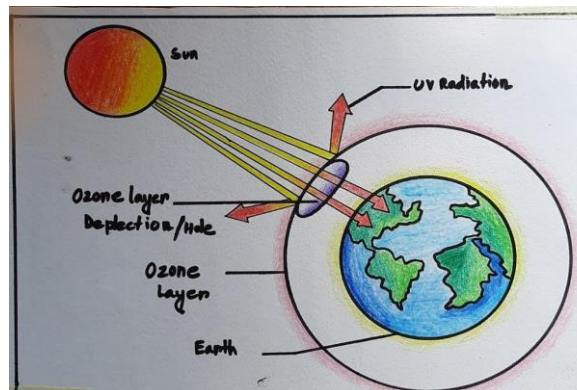 Sun
UV Radiation
Ozone layer
Deplection/Hole
Ozone
Layer
Earth